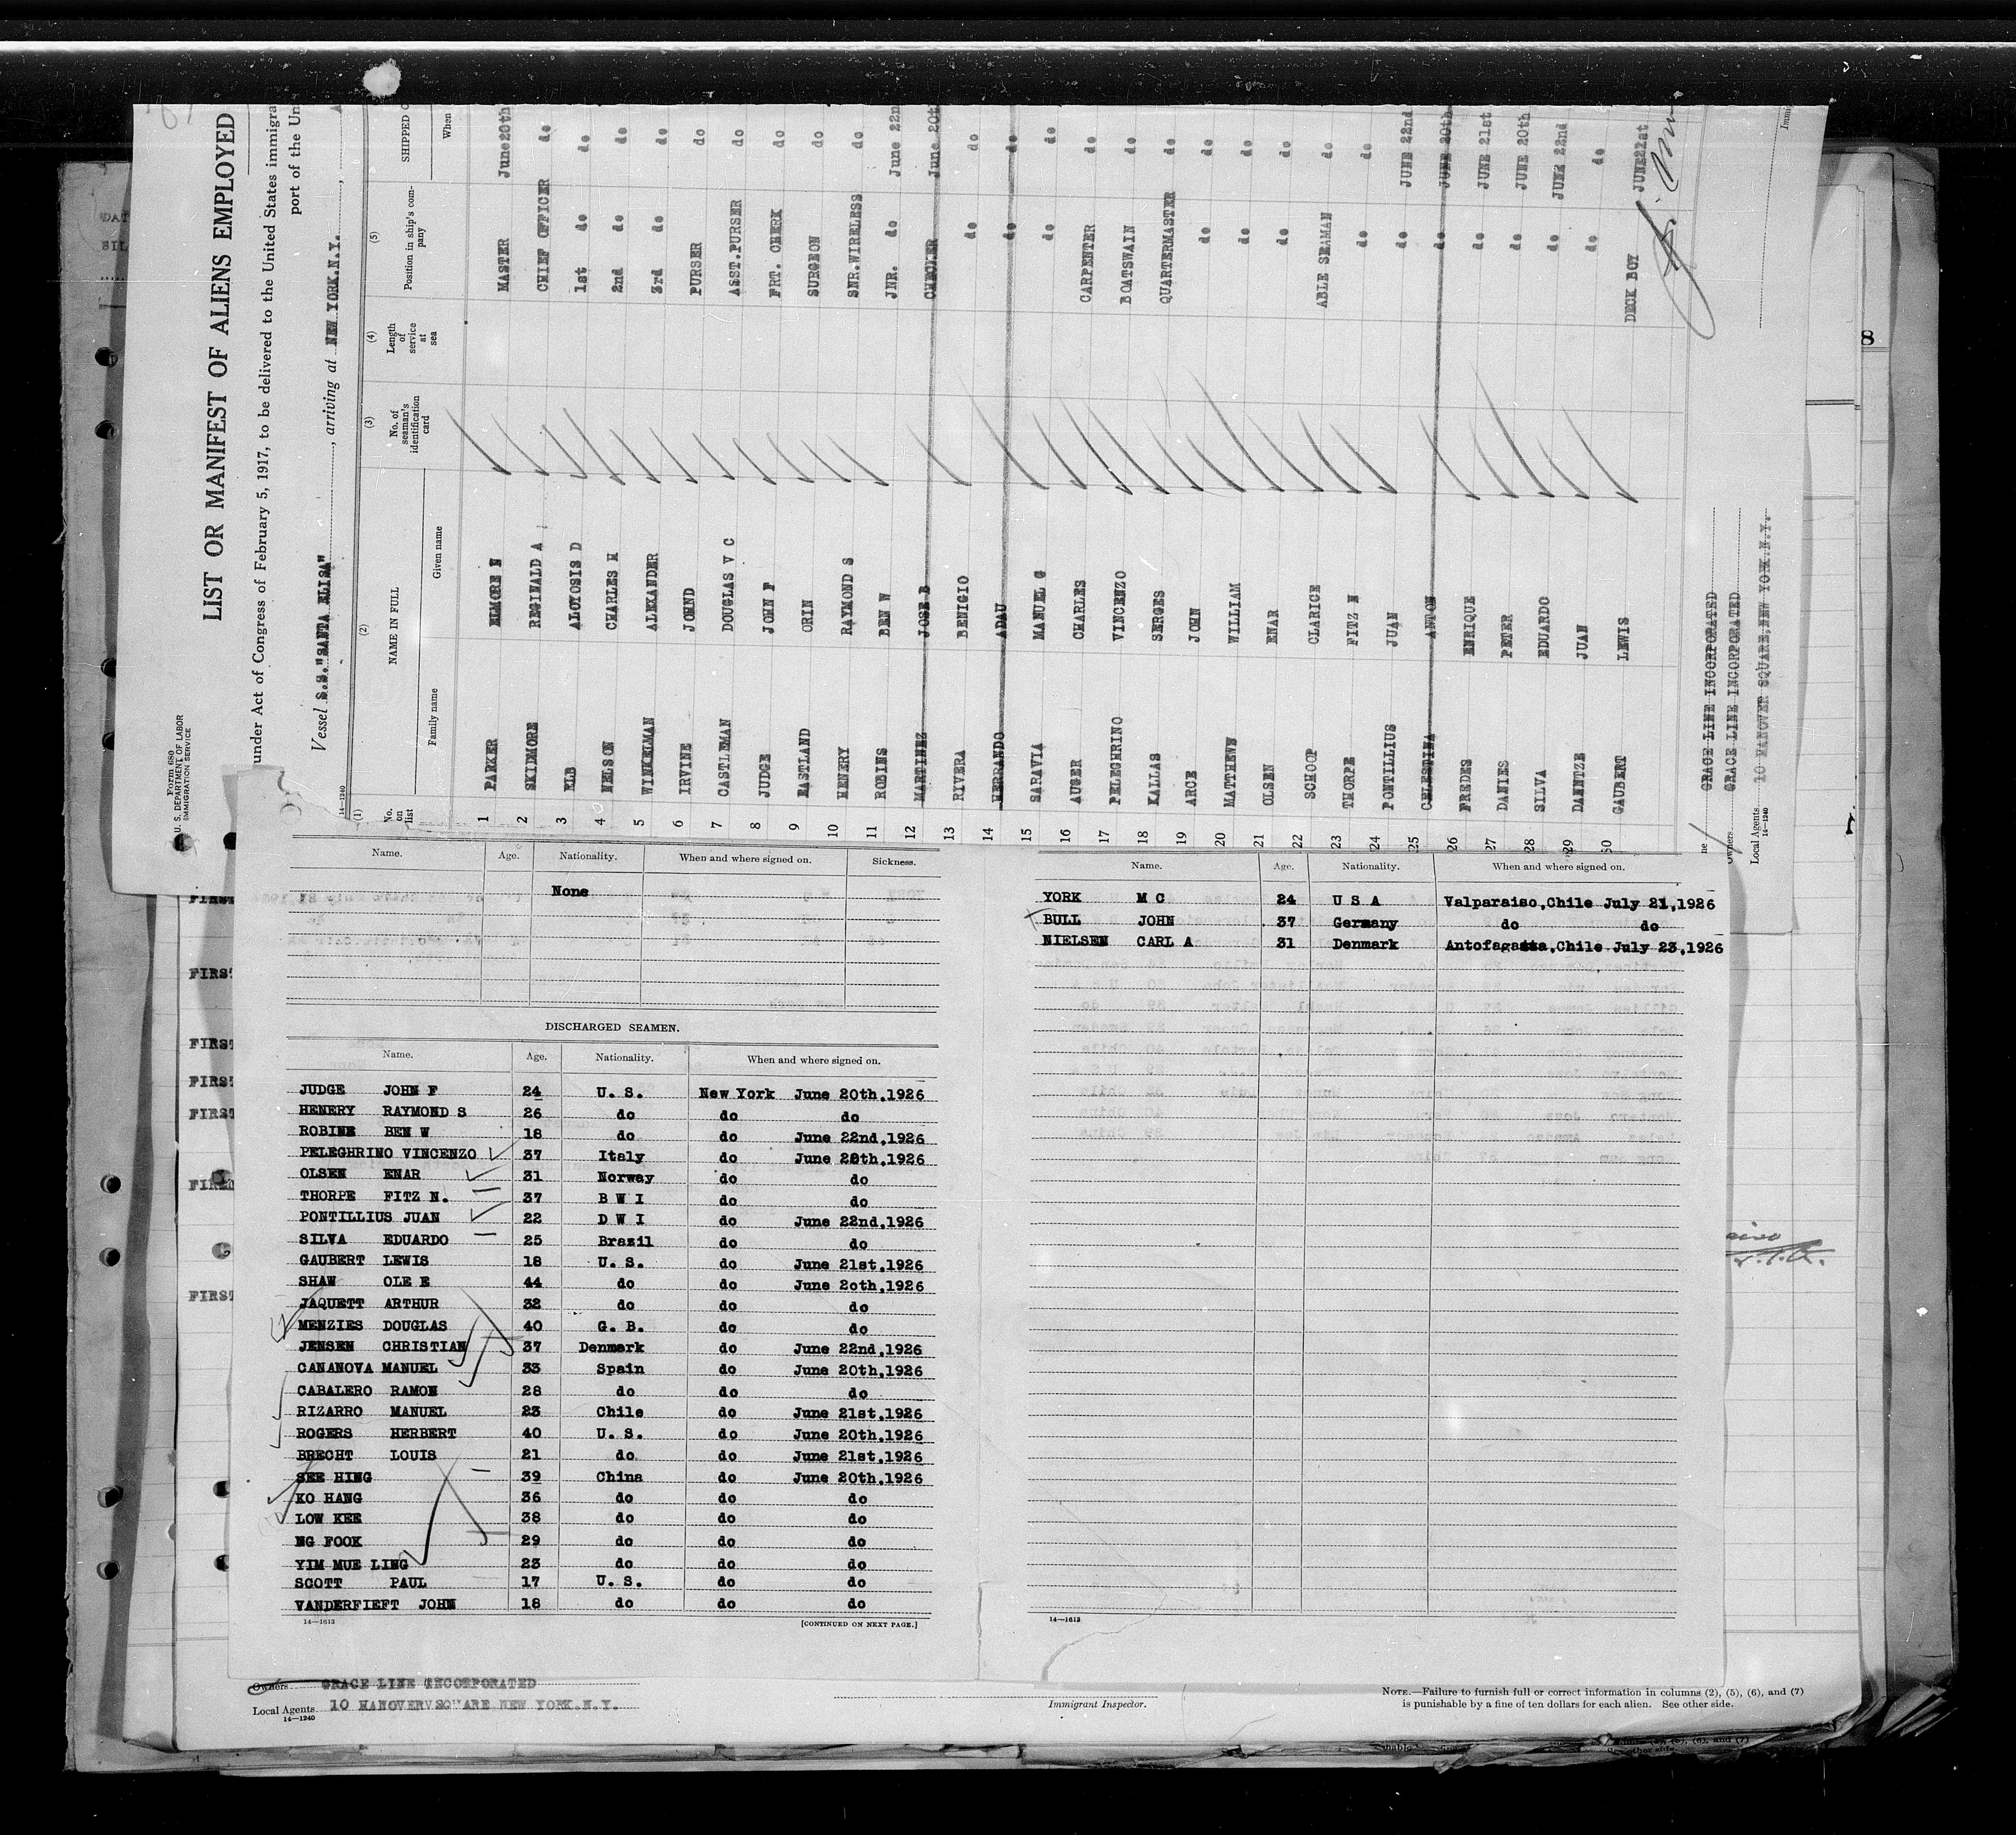 Form 680
U. S. DEPARTMENT OF LABOR
IMMIGRATION SERVICE
LIST OR MANIFEST OF ALIENS EMPLOYED
under Act of Congress of February 5, 1917, to be delivered to the United States immigra
port of the Un
Vessel S.S."SANTA ELISA" , arriving at NEW YORK.N.Y. ,
14—1240
(1) (2) (3) (4) (5)
No. on list NAME IN FULL No. of seaman's identification card Length of service at sea Position in ship's company SHIPPED
Family name Given name When
1 PARKER ELMORE N MASTER June20th
2 SKIDMORE REGINALD A CHIEF OFFICER do
3 ELB ALOYOSIS D 1st do do
4 NELSON CHARLES M 2nd do do
5 WINKELMAN ALEXANDER 3rd do do
6 IRVINE JOHND PURSER do
7 CASTLEMAN DOUGLAS V C ASST.PURSER do
8 JUDGE JOHN F FRT. CHERK do
9 EASTLAND ORIN SURGEON do
10 HENERY RAYMOND S SNR.WIRELESS do
11 ROBINS BEN W JNR. do June 22n
12 MARTINEZ JOSE B CHECKER June 20th
13 RIVERA BENIGIO do do
14 HERRANDO ADAU do do
15 SARAVIA MANUEL G do do
16 AUGER CHARLES CARPENTER do
17 PELEGHRINO VINCENZO BOATSWAIN do
18 KALLAS SERGES QUARTERMASTER do
19 ARCE JOHN do do
20 MATTHEWS WILLIAM do do
21 OLSEN ENAR do do
22 SCHOOP CLARICE ABLE SEAMAN do
23 THORPE FITZ N do do
24 PONTILLIUS JUAN do JUNE 22nd
25 CELESTINA ANTON do JUNE 20th
26 FREDES ENRIQUE do JUNE 21st
27 DANIES PETER do JUNE 20th
28 SILVA EDUARDO do JUNE 22nd
29 DANNTZE JUAN do do
30 GAUBERT LEWIS DECK BOY JUNE21st
GRACE LINE INCORPORATED
Owners GRACE LINE INCORPORATED
Local Agents 10 HANOVER SQUARE,NEW YORK.N.Y.
14—1240
Immig
8
FIRST
FIRST
FIRST
FIRST
FIRST
FIRST
FIRST
Name. Age. Nationality. When and where signed on. Sickness.
None
DISCHARGED SEAMEN.
Name. Age. Nationality. When and where signed on.
JUDGE JOHN F 24 U. S. New York June 20th,1926
HENERY RAYMOND S 26 do do do
ROBINE BEN W 18 do do June 22nd,1926
PELEGHRINO VINCENZO 37 Italy do June 20th,1926
OLSEN ENAR 31 Norway do do
THORPE FITZ N. 37 B W I do do
PONTILLIUS JUAN 22 D W I do June 22nd,1926
SILVA EDUARDO 25 Brazil do do
GAUBERT LEWIS 18 U. S. do June 21st,1926
SHAW OLE E 44 do do June 2oth,1926
JAQUETT ARTHUR 32 do do do
MENZIES DOUGLAS 40 G. B. do do
JENSEN CHRISTIAN 37 Denmark do June 22nd,1926
CANANOVA MANUEL 33 Spain do June 20th,1926
CABALERO RAMON 28 do do do
RIZARRO MANUEL 23 Chile do June 21st,1926
ROGERS HERBERT 40 U. S. do June 20th,1926
BRECHT LOUIS 21 do do June 21st,1926
SEE HING 39 China do June 20th,1926
KO HANG 36 do do do
LOW KEE 38 do do do
NG FOOK 29 do do do
YIM MUE LING 23 do do do
SCOTT PAUL 17 U. S. do do
VANDERFIEFT JOHN 18 do do do
14—1613 [CONTINUED ON NEXT PAGE.]
Name. Age. Nationality. When and where signed on.
YORK M C 24 U S A Valparaiso,Chile July 21,1926
BULL JOHN 37 Germany do do
NIELSEN CARL A 31 Denmark Antofagasta,Chile July 23,1926
14—1613
Owners GRACE LINE INCORPORATED
Local Agents 10 HANOVER SQUARE NEW YORK.N.Y.
14—1240
Immigrant Inspector.
NOTE.—Failure to furnish full or correct information in columns (2), (5), (6), and (7)
is punishable by a fine of ten dollars for each alien. See other side.